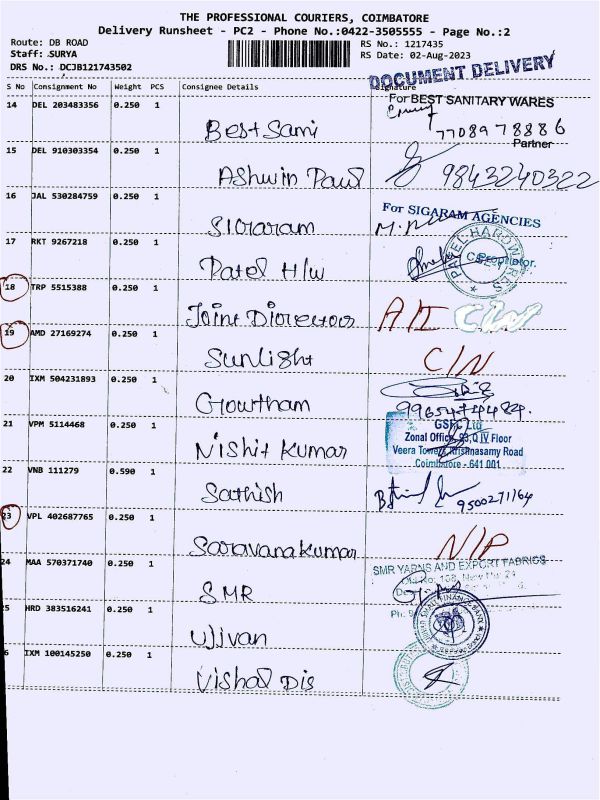 THE PROFESSIONAL COURIERS, COIMBATORE
Delivery Runsheet - PC2 - Phone No.:0422-3505555 - Page No.:2
Route: DB ROAD
Staff: SURYA
DRS No.: DCJB121743502
RS No.: 1217435
RS Date: 02-Aug-2023
DOCUMENT DELIVERY
S No Consignment No Weight PCS Consignee Details Signature
14 DEL 203483356 0.250 1
For BEST SANITARY WARES
Best Sani
7708978886
Partner
15 DEL 910303354 0.250 1
Ashwin Paul 9843240322
16 JAL 530284759 0.250 1
For SIGARAM AGENCIES
Sigaram
17 RKT 9267218 0.250 1
PATEL HARDWARES
Proprietor.
Patel H/w
18 TRP 5515388 0.250 1
Joint Director A/I C/N
19 AMD 27169274 0.250 1
Sunlight C/N
20 IXM 504231893 0.250 1
Gowtham
21 VPM 5114468 0.250 1
GSFC Ltd
Zonal Office, 93,Q IV Floor
Nishit Kumar
Veera Towers, Krishnasamy Road
Coimbatore - 641 001
22 VNB 111279 0.590 1
Sathish 9500271164
23 VPL 402687765 0.250 1
Saravanakumar N/P
24 MAA 570371740 0.250 1
SMR YARNS AND EXPORT FABRICS
Old No: 108, New No: 21
SMR
25 HRD 383516241 0.250 1
Ujivan
6 IXM 100145250 0.250 1
Vishal Dis